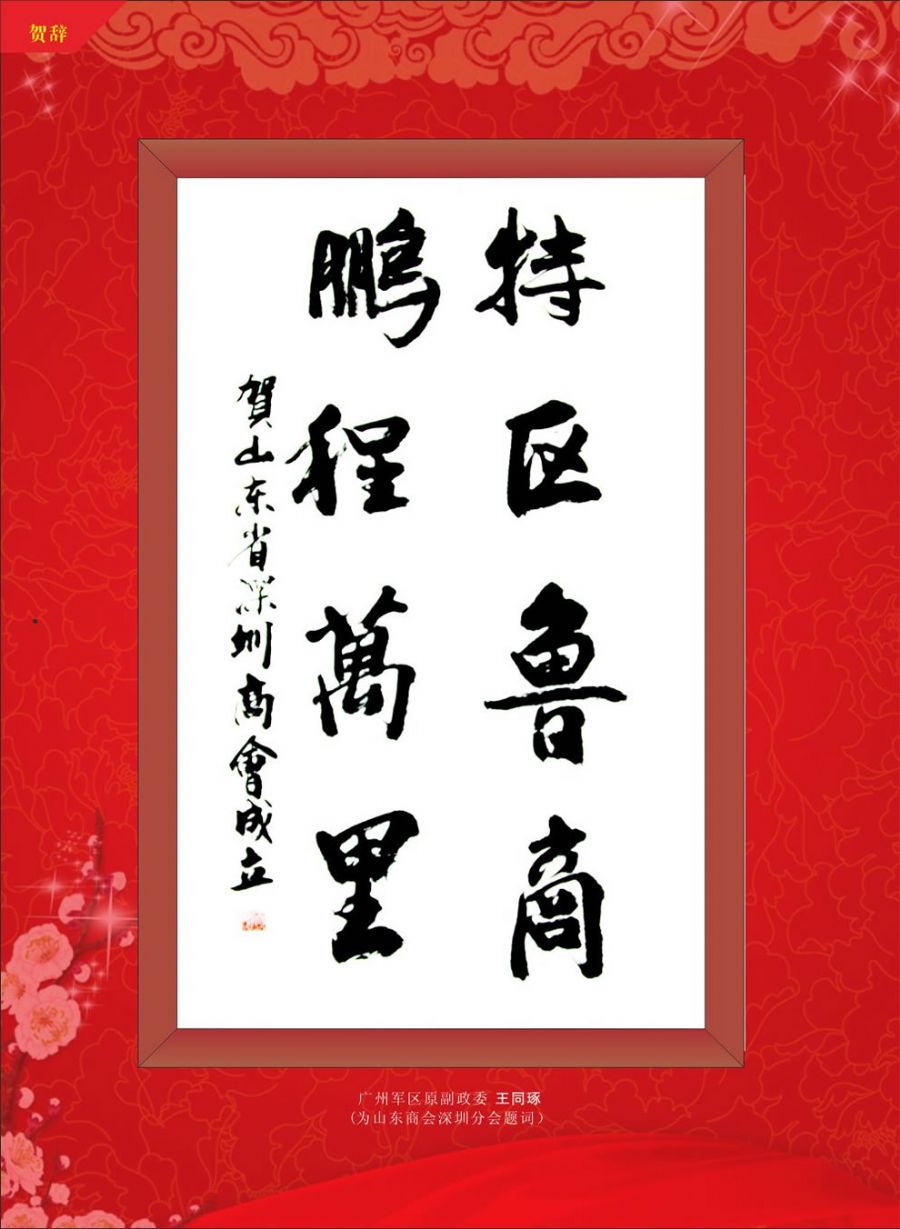 贺辞
特区鲁商
鹏程萬里
賀山东省深圳商會成立
广州军区原副政委 王同琢
(为山东商会深圳分会题词)